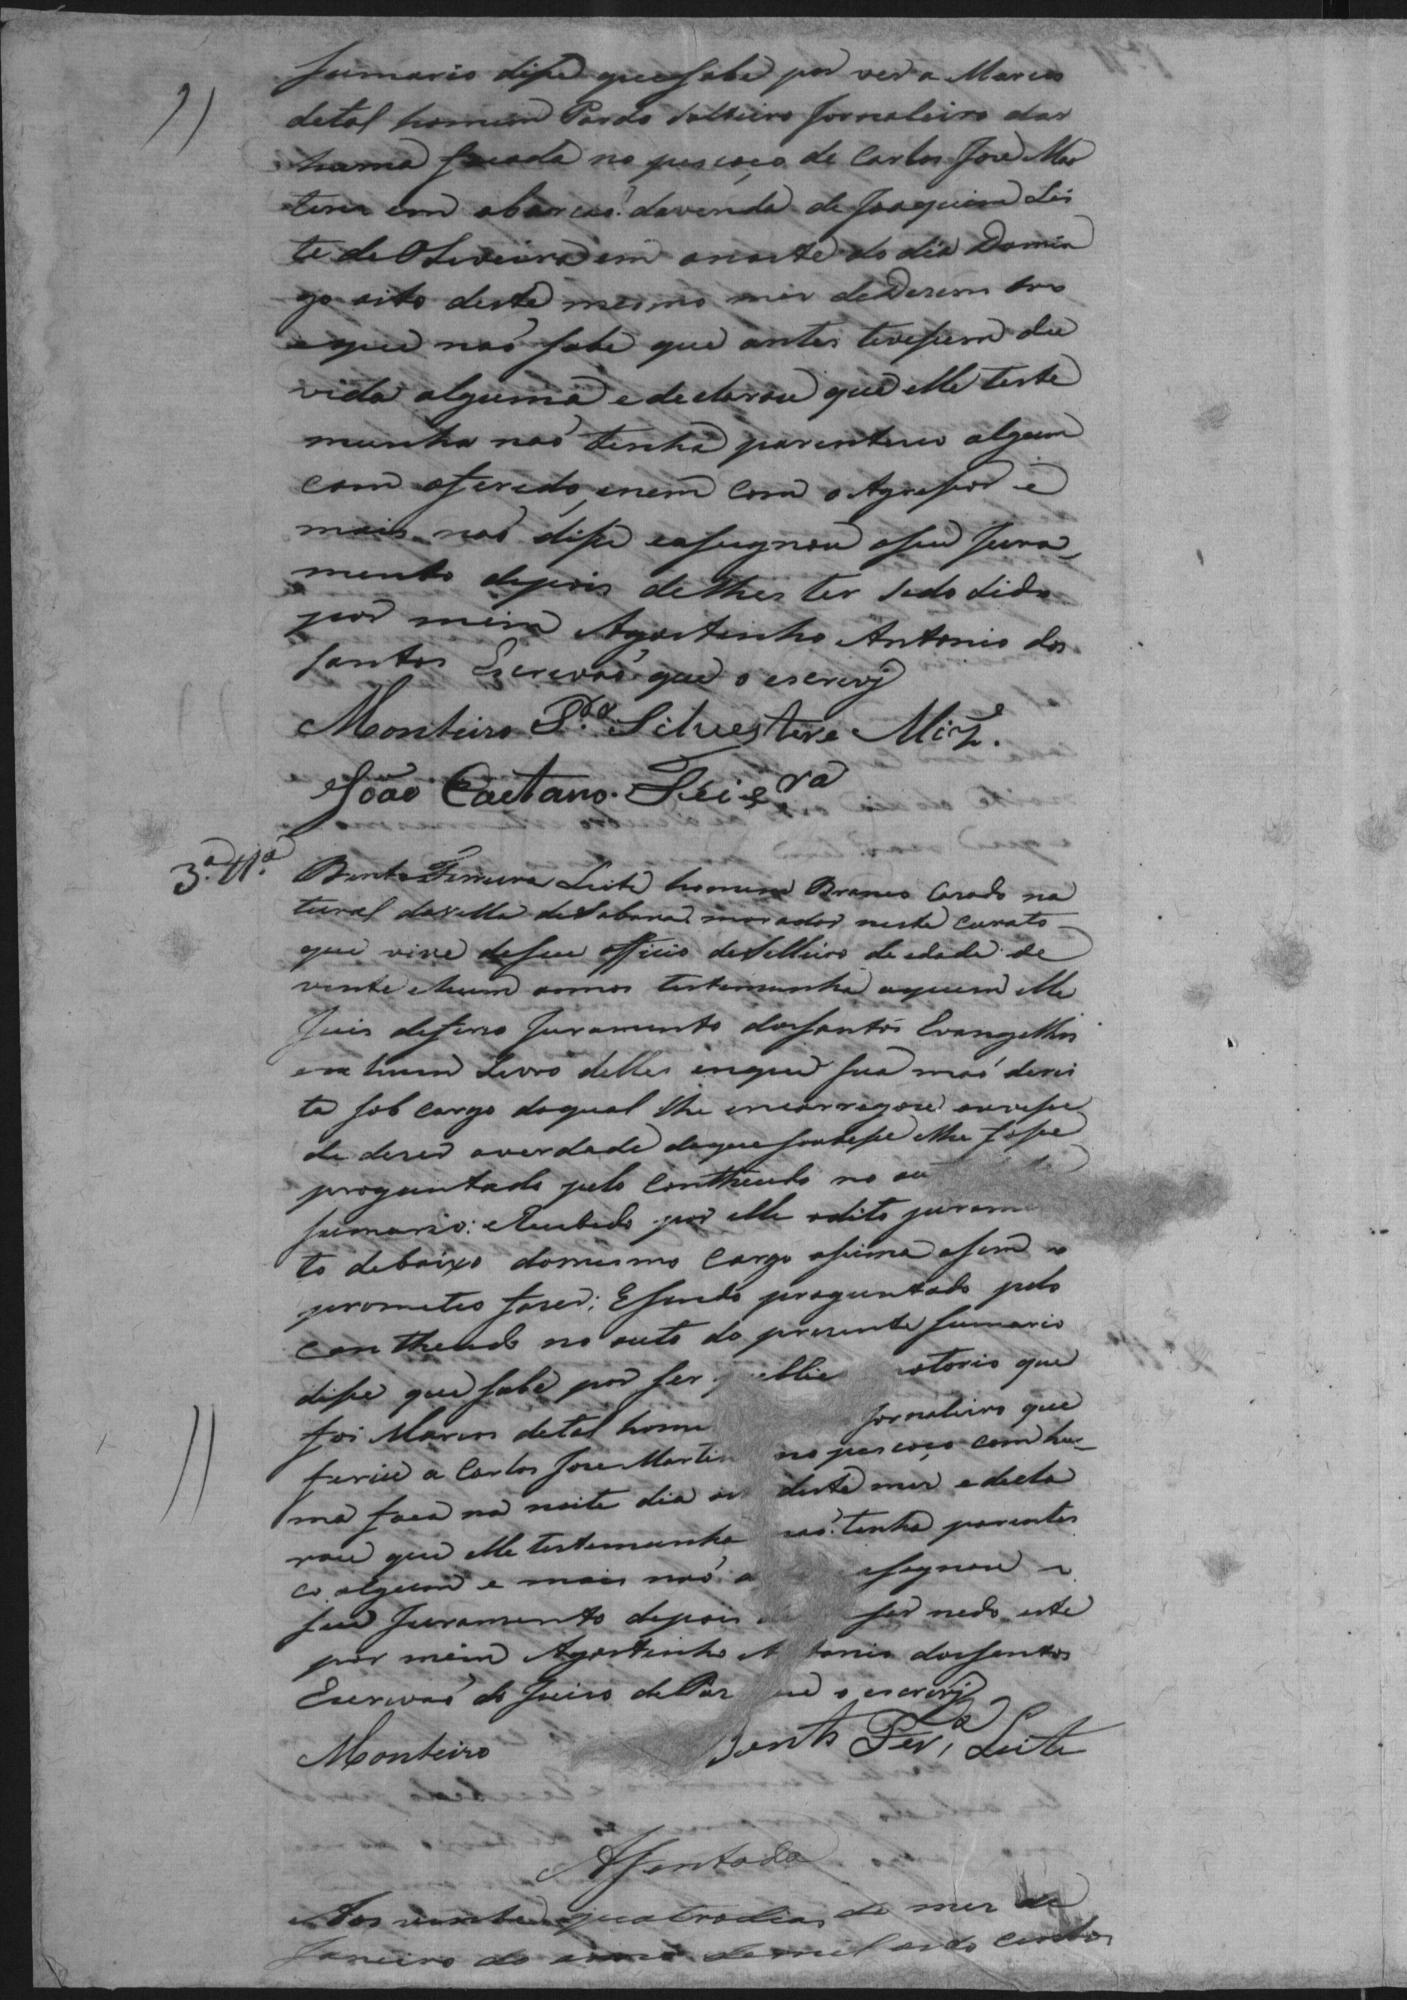 sumario disse que sabe por ver a Marcos
de tal homem Pardo solteiro jornaleiro dar
huma facada no pescoço de Carlos José Mar
tins em a varcaõ da venda de Joaquim Lei
te de Oliveira em a noite do dia Domin
go oito deste mesmo mes de Desembro
e que naõ sabe que antes tivessem du
vida alguma e declarou que elle teste
munha naõ tinha parentesco algum
com o ferido, e nem com o Agressor e
mais naõ disse e assignou o seu Jura
mento depois de lhes ter sido lido
por mim Agostinho Antonio dos
Santos Escrivaõ que o escrevj
Monteiro P.do Silvestre Miz.e
João Caetano Frei.ra
3.ª T.ª
Bento Ferreira Leite homem Branco Casado na
tural da Villa de Sabará morador neste Curato
que vive de seu officio de Selleiro de edade de
vinte e hum annos testemunha a quem elle
Juis deferio Juramento dos Santos Evangelhos
em hum Livro delles em que sua maõ direi
ta sob cargo do qual lhe encarregou ouvesse
de diser a verdade do que soubesse e lhe fosse
proguntado pelo contheudo no au
sumario: e recebido por elle o dito juram
to debaixo do mesmo cargo assima assim o
prometeo faser; E sendo proguntado pelo
contheudo no auto do presente sumario
disse que sabe por ser publico notorio que
foi Marcos de tal hom jornaleiro que
feriu a Carlos Jose Martins no pescoço com hu
ma faca na noite dia oi deste mes e decla
rou que elle testemunha naõ tinha parentes
co algum e mais naõ assignou o
seu Juramento depois ser lido este
por mim Agostinho Antonio dos Santos
Escrivaõ do Juiso de Pas que o escrevj
Monteiro Bento Ferr.a Leite
Assentada
Aos vinte quatro dias do mes de
Janeiro do anno de mil oito centos